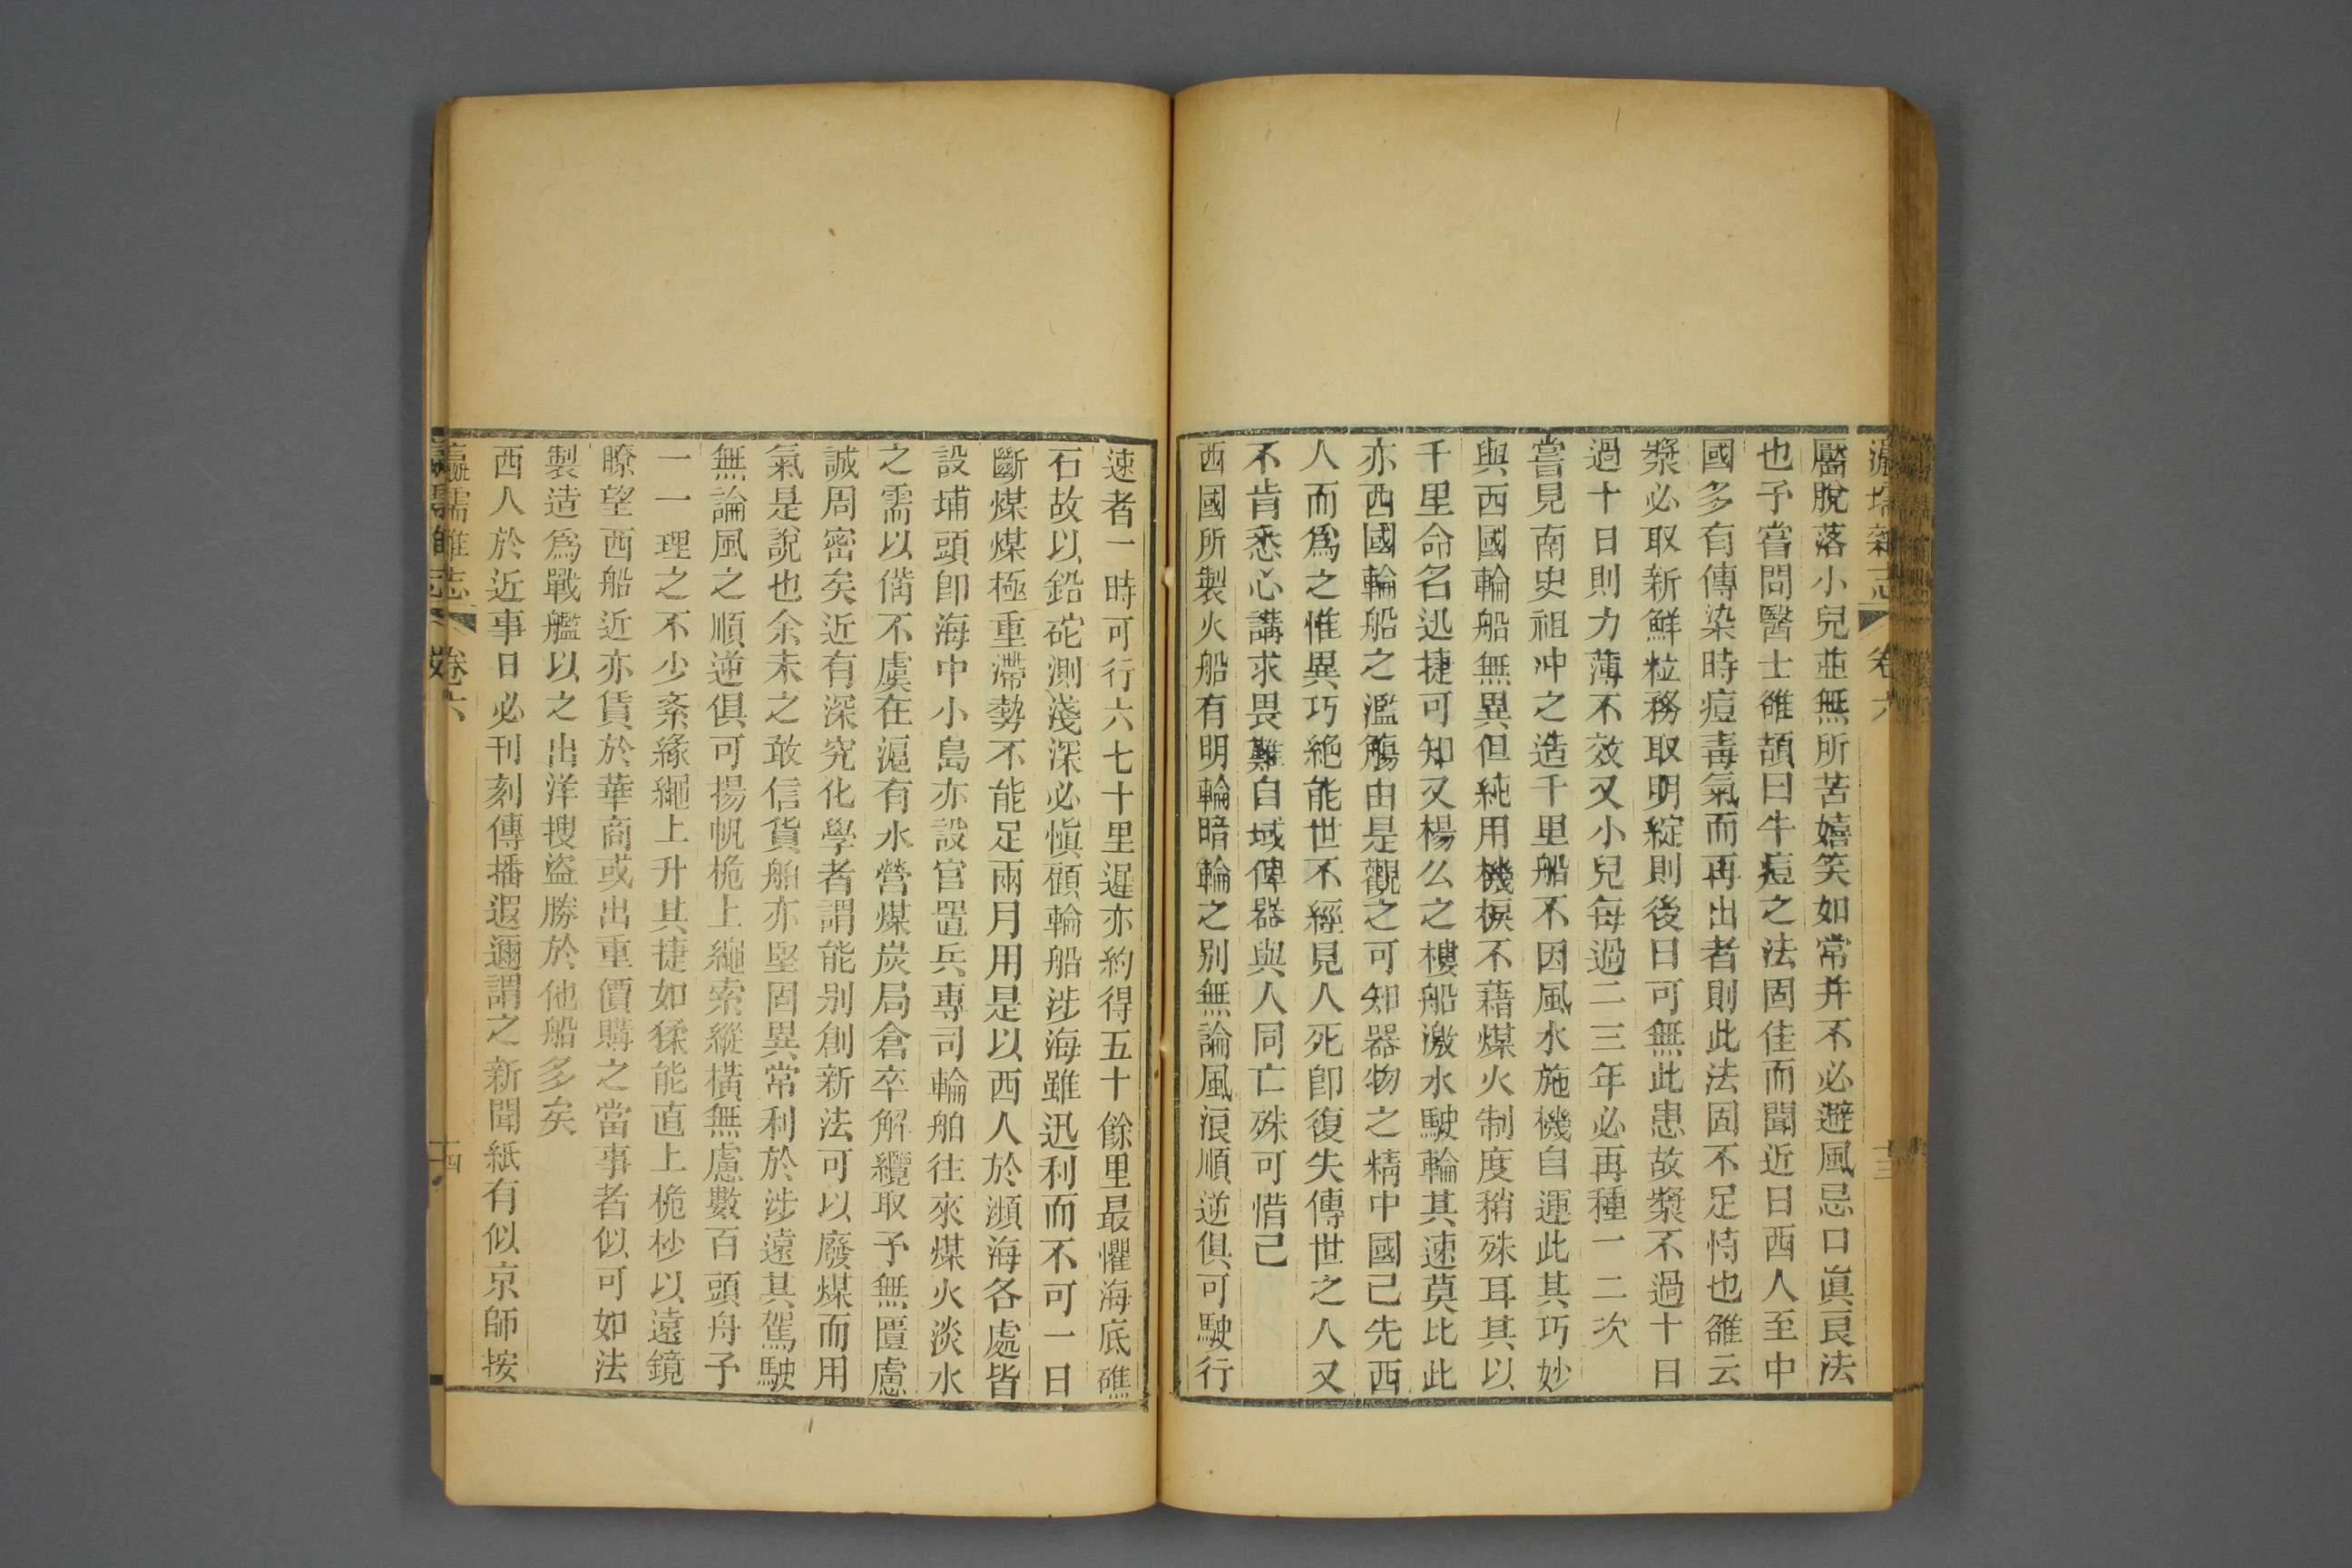 卷六
十三
靨脫落小兒並無所苦嬉笑如常并不必避風忌口眞良法
也予嘗問醫士雒頡曰牛痘之法固佳而聞近日西人至中
國多有傳染時痘毒氣而再出者則此法固不足恃也雒云
漿必取新鮮粒務取明綻則後日可無此患故漿不過十日
過十日則力薄不效又小兒每過二三年必再種一二次
嘗見南史祖冲之造千里船不因風水施機自運此其巧妙
與西國輪船無異但純用機棙不藉煤火制度稍殊耳其以
千里命名迅捷可知又楊么之樓船激水駛輪其速莫比此
亦西國輪船之濫觴由是觀之可知器物之精中國已先西
人而爲之惟異巧絶能世不經見人死卽復失傳世之人又
不肯悉心講求畏難自域俾器與人同亡殊可惜已
西國所製火船有明輪暗輪之别無論風浪順逆俱可駛行
速者一時可行六七十里遲亦約得五十餘里最懼海底礁
石故以鉛砣測淺深必愼頋輪船涉海雖迅利而不可一日
斷煤煤極重滯勢不能足兩月用是以西人於瀕海各處皆
設埔頭卽海中小島亦設官置兵專司輪舶往來煤火淡水
之需以備不虞在滬有水營煤炭局倉卒解纜取予無匱慮
誠周密矣近有深究化學者謂能别創新法可以廢煤而用
氣是說也余未之敢信貨舶亦堅固異常利於涉遠其駕駛
無論風之順逆俱可揚帆桅上繩索縱橫無慮數百頭舟子
一一理之不少紊緣繩上升其捷如猱能直上桅杪以遠鏡
瞭望西船近亦賃於華商或出重價購之當事者似可如法
製造爲戰艦以之出洋搜盜勝於他船多矣
西人於近事日必刊刻傳播遐邇謂之新聞紙有似京師按
瀛壖雜志
卷六
十四